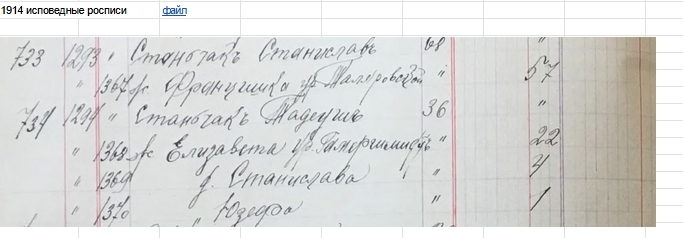 1914 исповедные росписи файл
733 1293 " Станьчакъ Станиславъ 68 "
" 1367 ж. Францишка ур. " 57
734 1294 " Станьчакъ Тадеушъ 36 "
" 1368 ж Елизавета ур. " 22
" 1369 д. Станислава " 4
" 1370 " Юзефа " 1